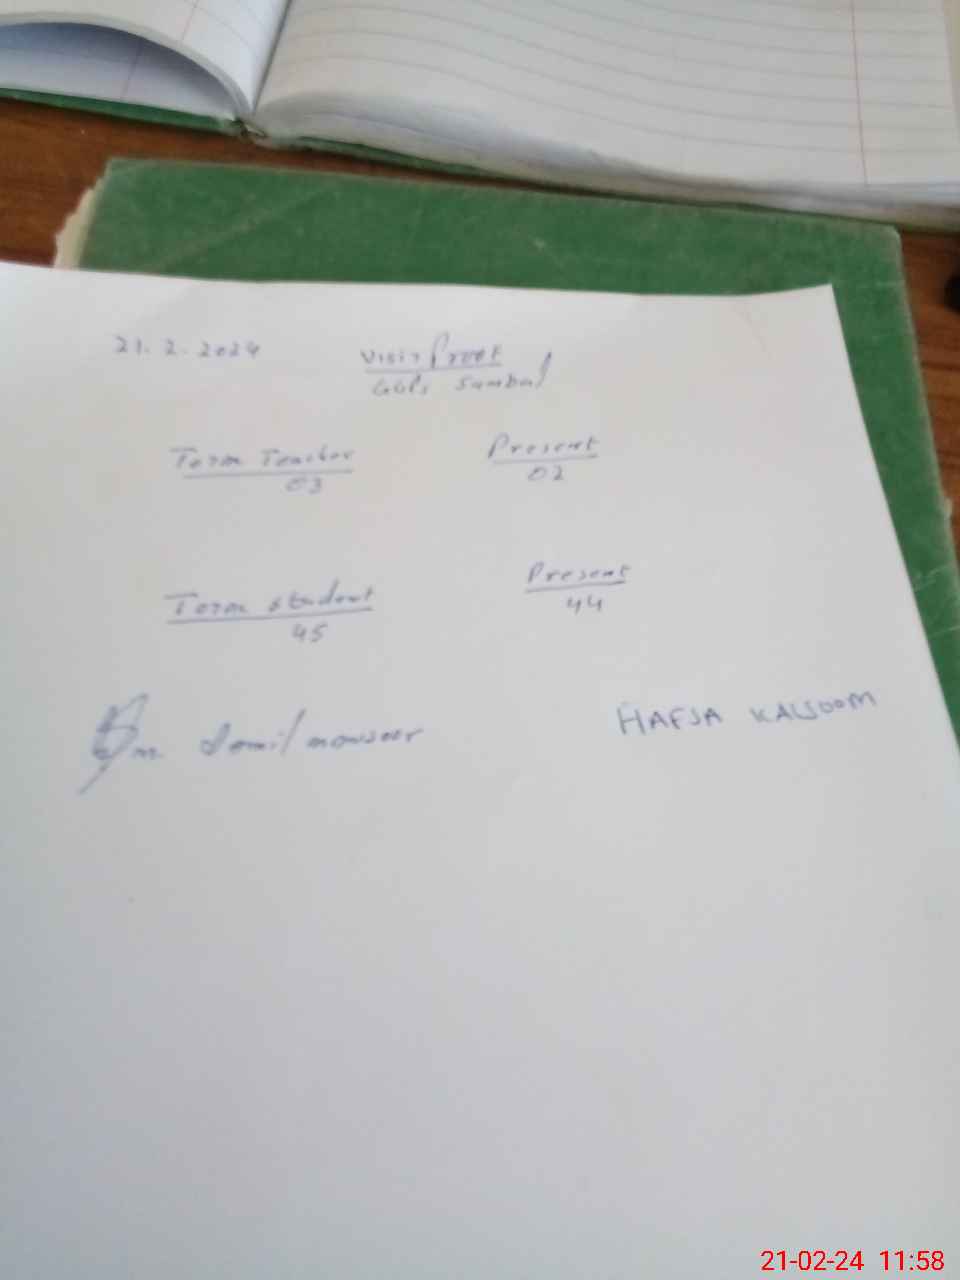 21. 2. 2024
Visit Proof
GGPS Sambal
Term Teacher
03
Present
02
Term student
45
Present
44
HAFSA KALSOOM
21-02-24 11:58